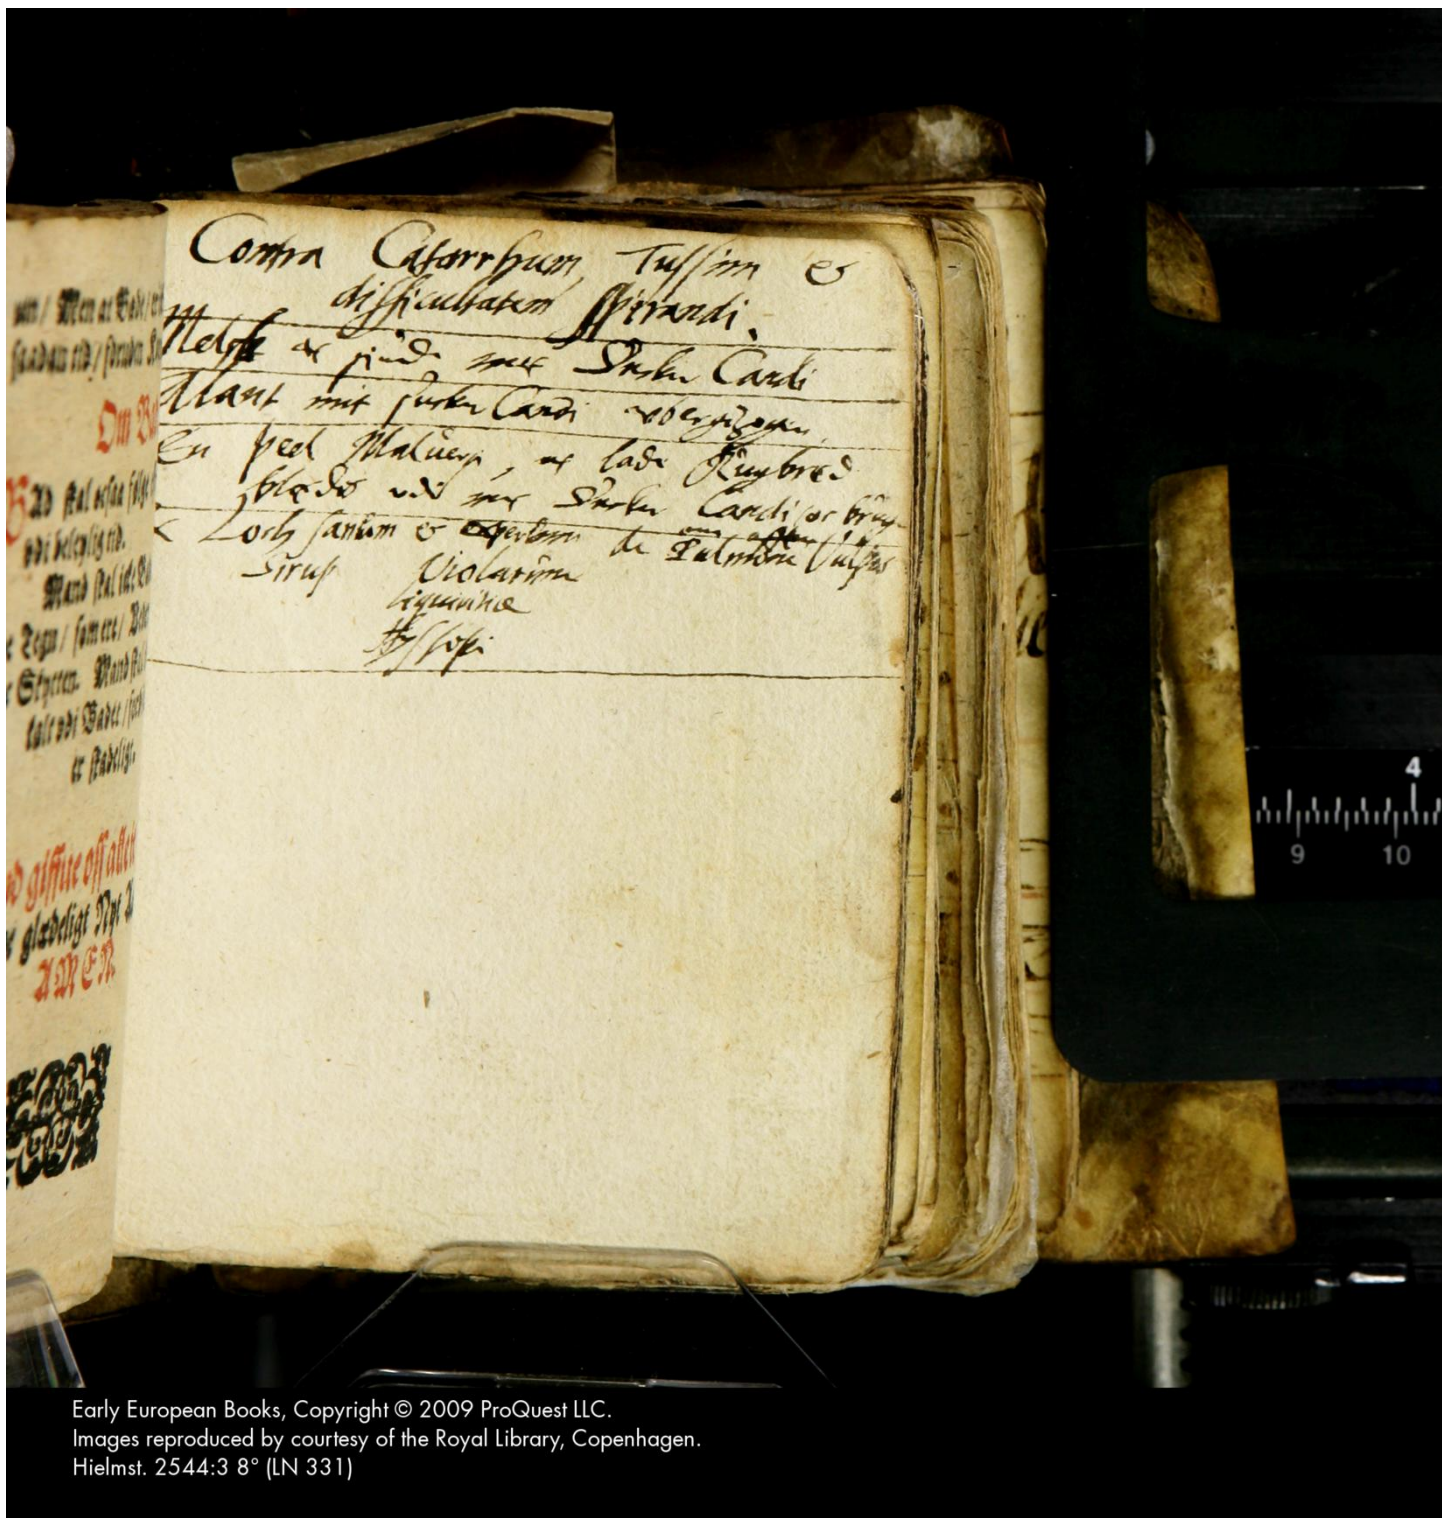 um / Men at Bede / er
saadan tid / foruden
Om Ba
BAd skal ocsaa følge
vdi beleylig tid.
Mand skal icke
Tegn / som ere /
Skytten. Mand skal
kalt vdi Badet /
er skadeligt.
giffue oss alle
glædeligt Nyt
AMEN.
Contra Catarrhum, Tussim &
difficultatem spirandi.
Melck at siude met Sucker Candi
Alant mit sucker Candi
En peel Maluesy, at lade
blede vdi met Sucker Candi oc brug
Loch sanum & expertum de Pulmone Vulpis
Sirup Violarum
liquiritiæ
Hyssopi
4
9 10
Early European Books, Copyright © 2009 ProQuest LLC.
Images reproduced by courtesy of the Royal Library, Copenhagen.
Hielmst. 2544:3 8° (LN 331)